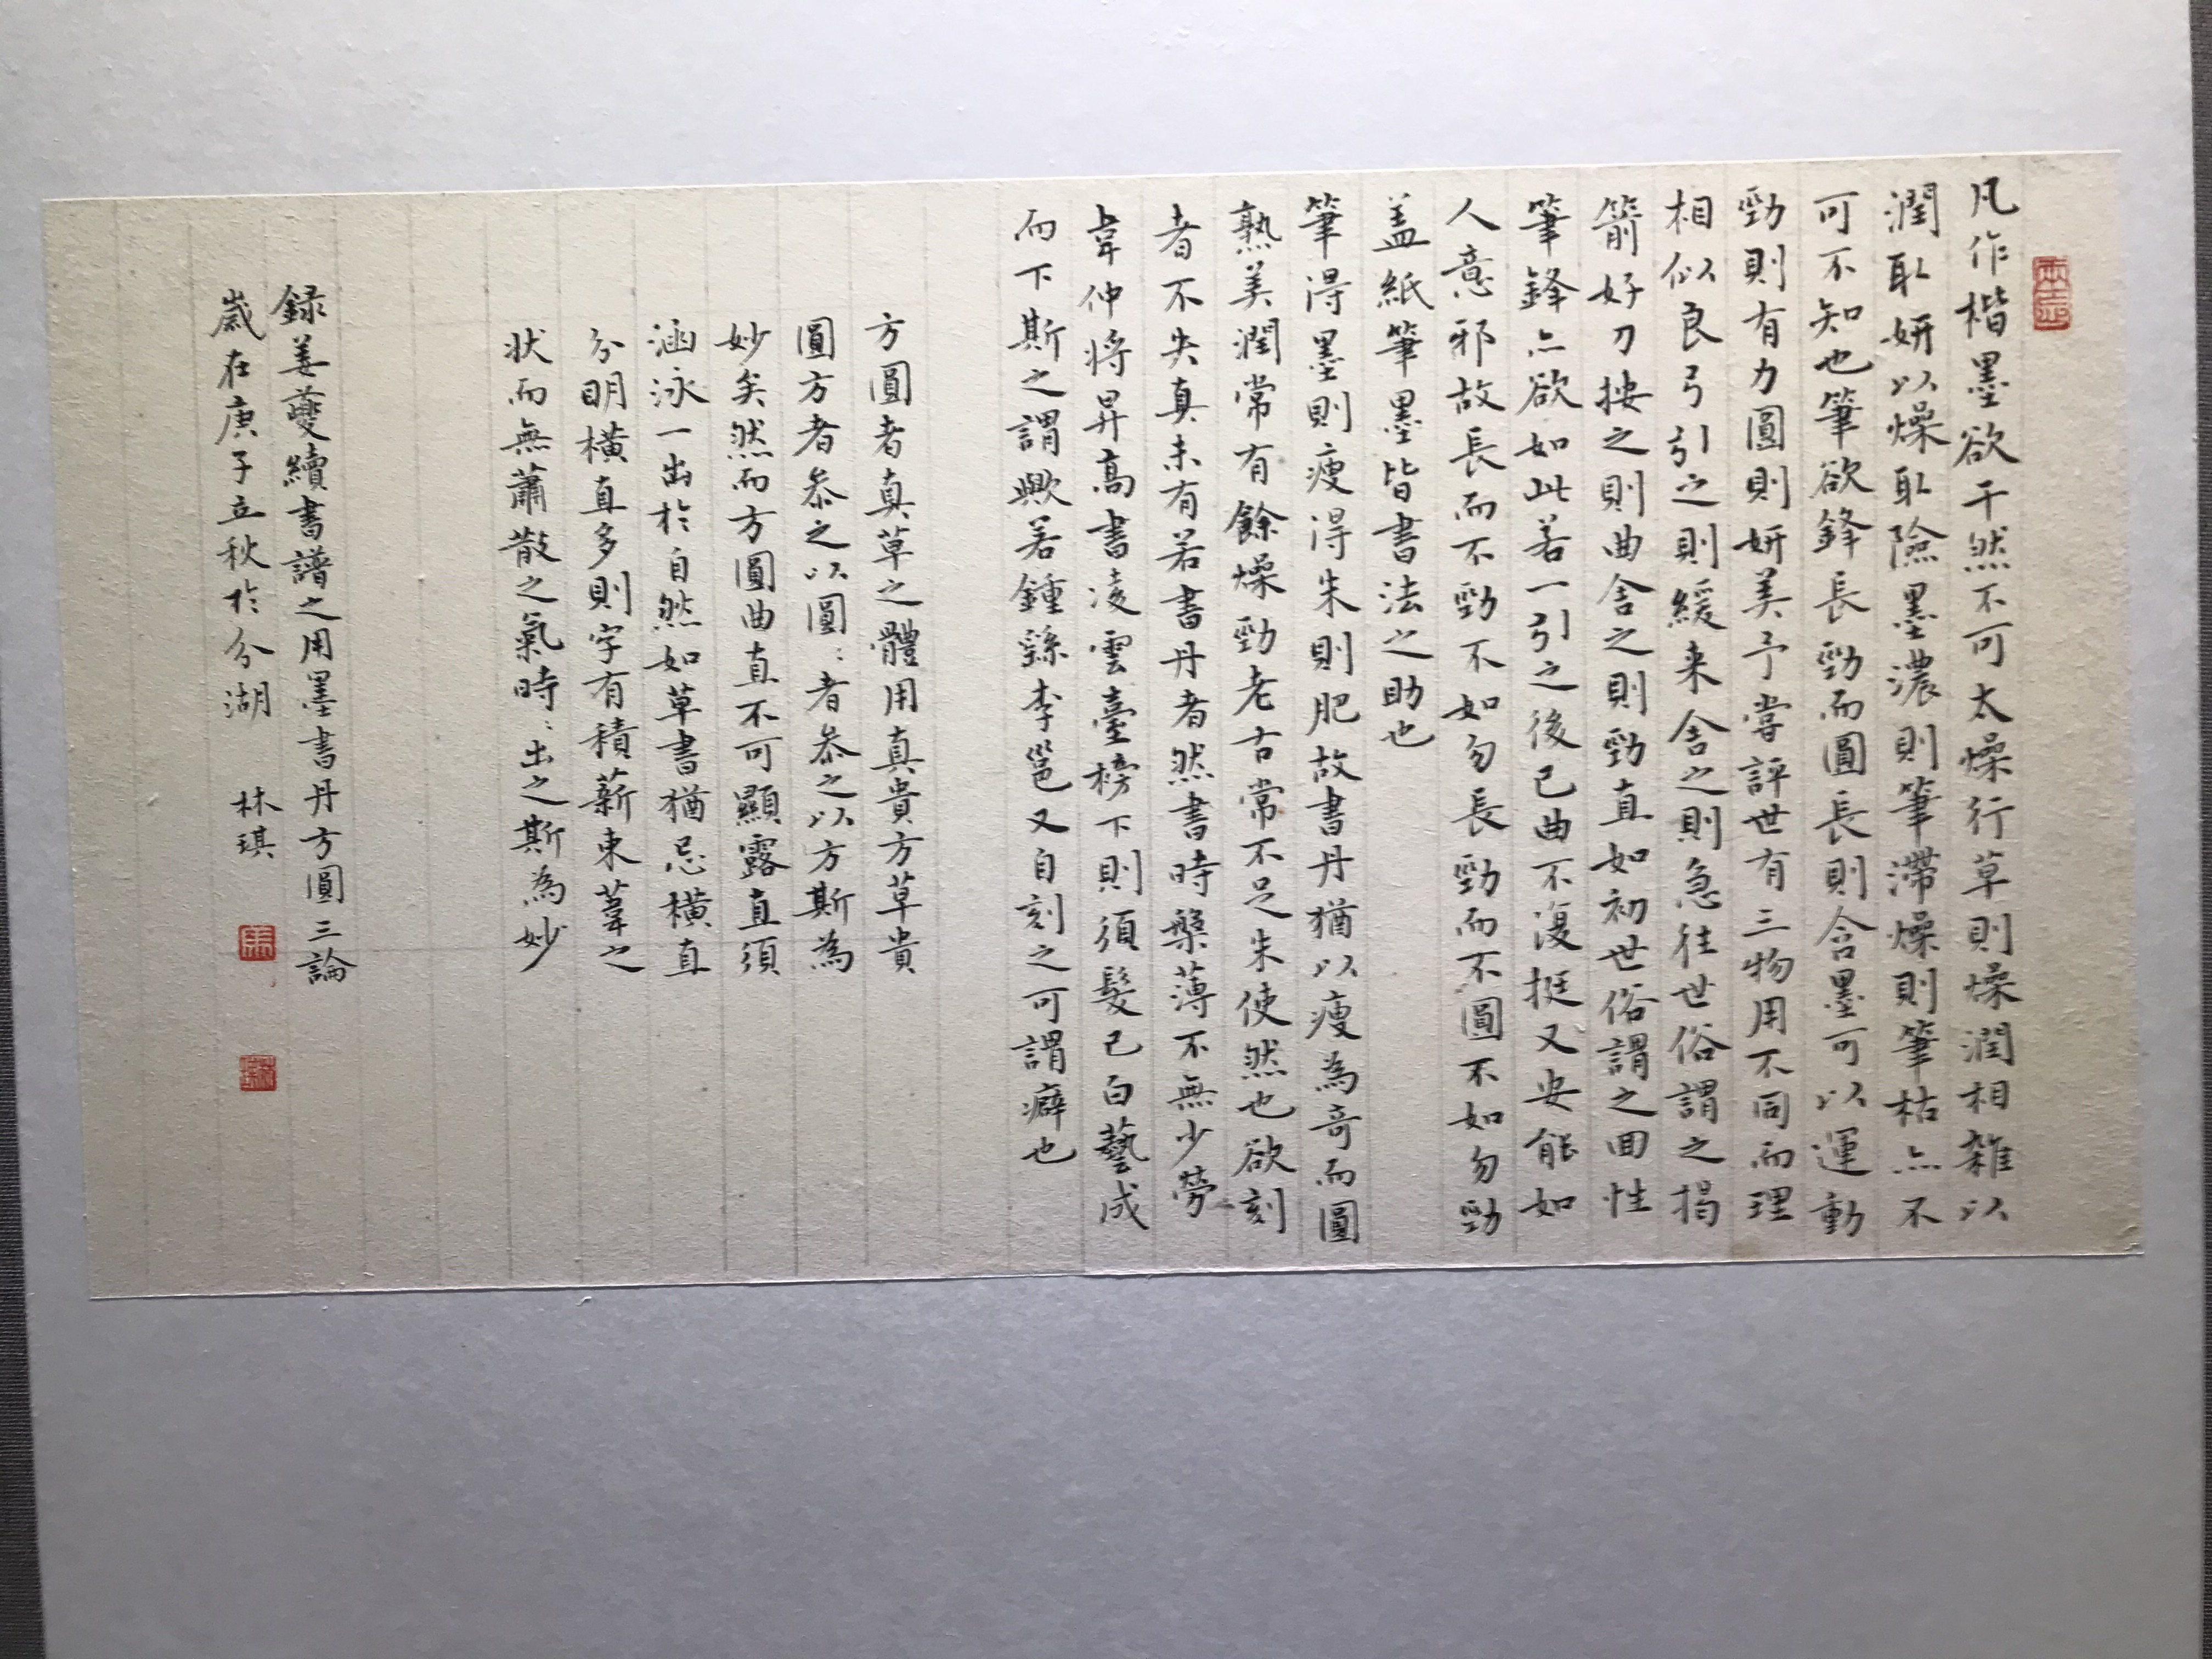 凡作楷墨欲干然不可太燥行草則燥潤相雜以
潤取妍以燥取險墨濃則筆滯燥則筆枯亦不
可不知也筆欲鋒長勁而圓長則含墨可以運動
勁則有力圓則妍美予嘗評世有三物用不同而理
相似良弓引之則緩来舍之則急往世俗謂之揭
箭好刀按之則曲舍之則勁直如初世俗謂之回性
筆鋒亦欲如此若一引之後已曲不復挺又安能如
人意邪故長而不勁不如勿長勁而不圓不如勿勁
盖紙筆墨皆書法之助也
筆得墨則瘦得朱則肥故書丹猶以瘦為奇而圓
熟美潤常有餘燥勁老古常不足朱使然也欲刻
者不失真未有若書丹者然書時槃薄不無少勞
韋仲將昇高書凌雲臺榜下則須髮已白藝成
而下斯之謂歟若鍾繇李邕又自刻之可謂癖也
方圓者真草之體用真貴方草貴
圓方者参之以圓:者参之以方斯為
妙矣然而方圓曲直不可顯露直須
涵泳一出於自然如草書猶忌橫直
分明橫直多則字有積薪束葦之
状而無蕭散之氣時:出之斯為妙
録姜夔續書譜之用墨書丹方圓三論
歲在庚子立秋於分湖 林琪